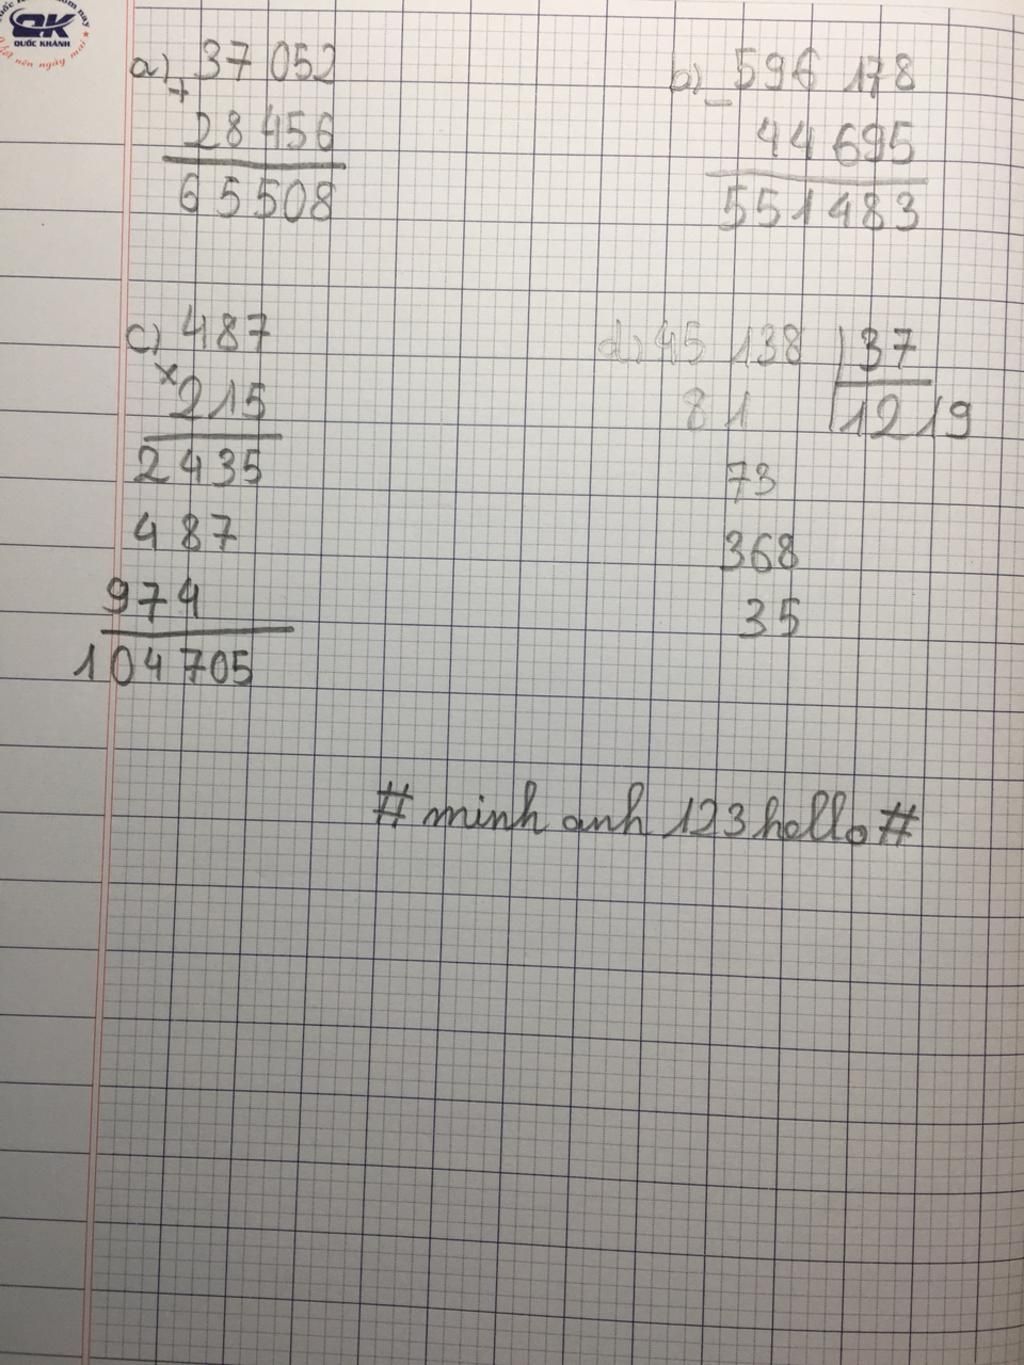 QK
QUỐC KHÁNH
a) 37 052
+
28 456
65 508
b) 596 178
-
44 695
551 483
c) 487
x
215
2435
487
974
104 705
d) 45 138 37
81 1219
73
368
35
# minh anh 123 hello #